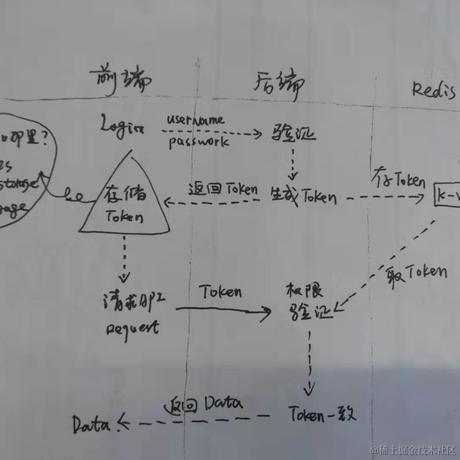 前端 后端 Redis
Login username password 验证
哪里?
存储
Token
返回Token
生成Token
存Token
K-V
取Token
请求API
request
Token
权限
验证
Token一致
返回Data
Data
@稀土掘金技术社区